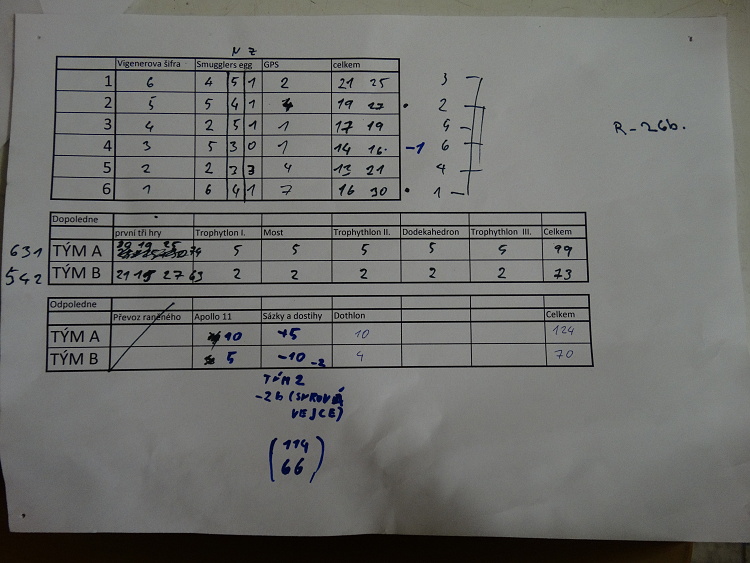 N Z
Vigenerova šifra Smugglers egg GPS celkem
1 6 4 5 1 2 21 25 3
2 5 5 4 1 19 27 • 2
3 4 2 5 1 1 17 19 5
4 3 5 3 0 1 14 16 -1 6
5 2 2 3 3 4 13 21 4
6 1 6 4 1 7 16 30 • 1
R-26b.
Dopoledne
první tři hry Trophytlon I. Most Trophythlon II. Dodekahedron Trophythlon III. Celkem
631 TÝM A 74 5 5 5 5 5 99
542 TÝM B 21 19 27 63 2 2 2 2 2 73
Odpoledne
Převoz raněného Apollo 11 Sázky a dostihy Dothlon Celkem
TÝM A 10 +5 10 124
TÝM B 5 -10 -2 4 70
TÝM 2
-2b (SUROVÁ
VEJCE)
(114
66)